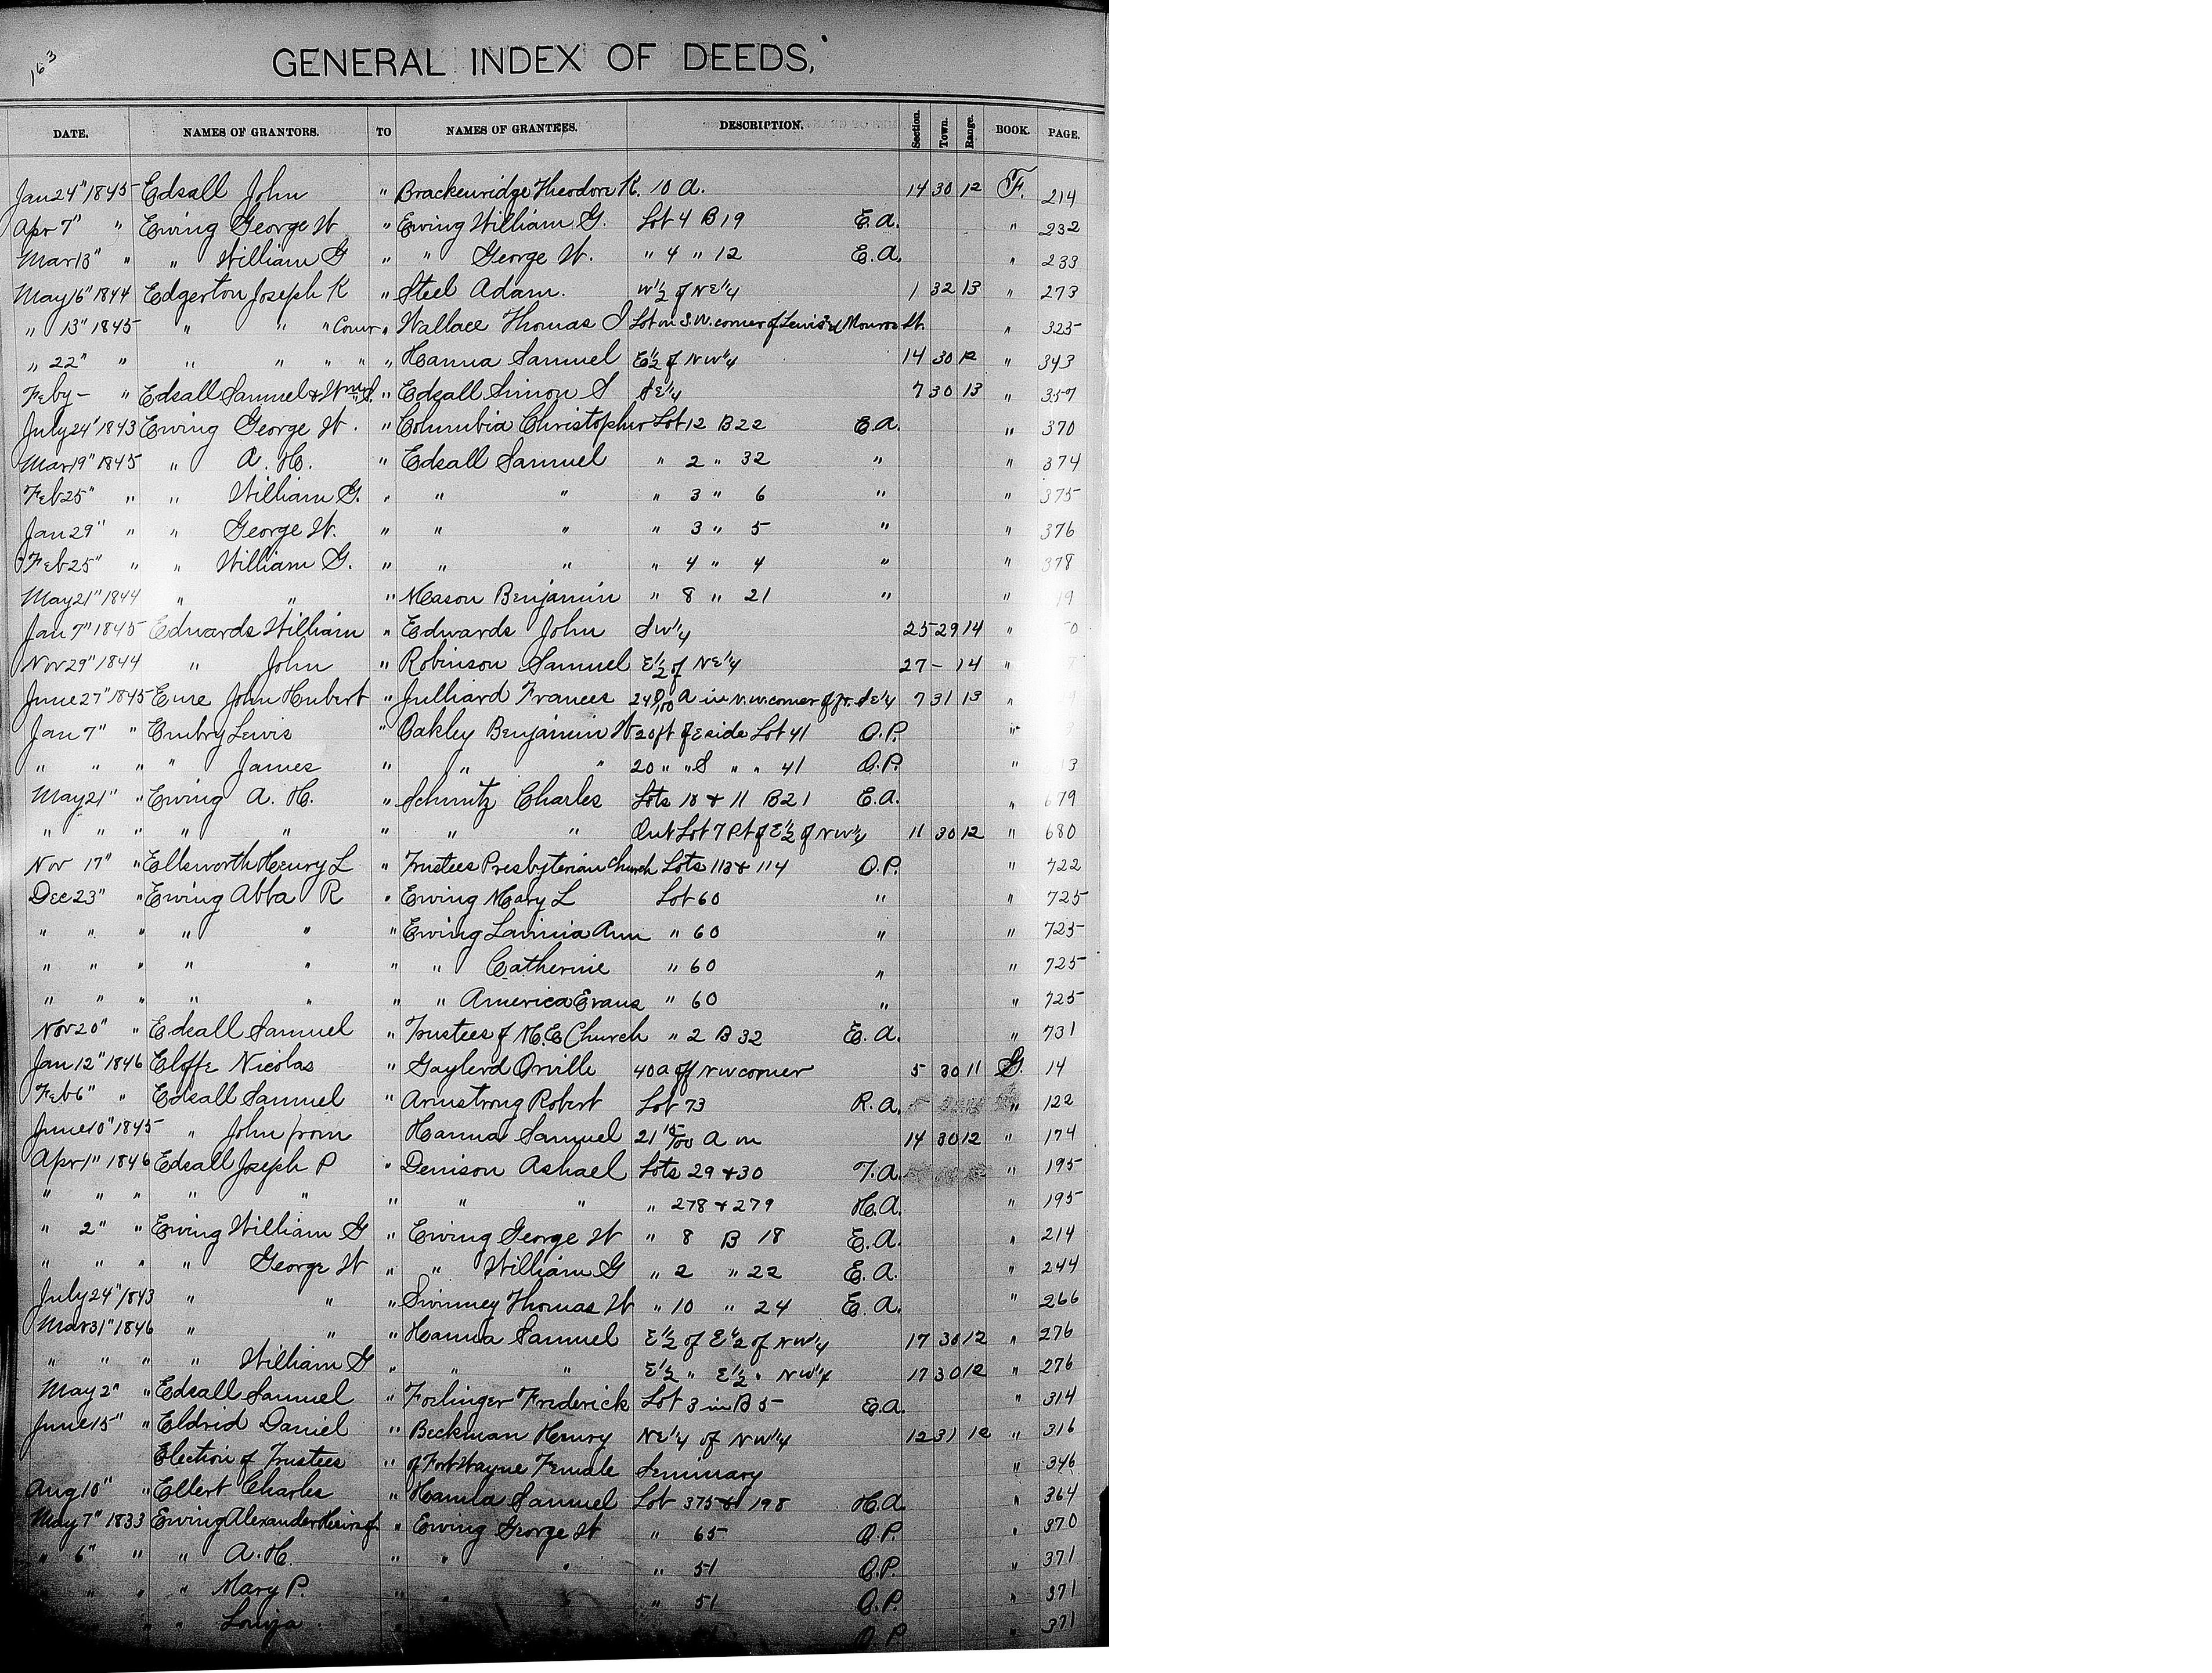 163
GENERAL INDEX OF DEEDS,
DATE. NAMES OF GRANTORS. TO NAMES OF GRANTEES. DESCRIPTION. Section. Town. Range. BOOK. PAGE.
Jan 24" 1845 Edsall John " Brackenridge Theodore K. 10 A. 14 30 12 F. 214
Apr 7" " Ewing George W " Ewing William G. Lot 4 B 19 E.A. " 232
Mar 13" " " William G " " George W. " 4 " 12 E.A. " 233
May 16" 1844 Edgerton Joseph K " Steel Adam. W 1/2 of NE 1/4 1 32 13 " 273
" 13" 1845 " " " Comr " Wallace Thomas J Lot on S.W. corner of Lewis & Monroe St. " 325
" 22" " " " " " " Hanna Samuel E 1/2 of NW 1/4 14 30 12 " 343
Feby - " Edsall Samuel & Wm S. " Edsall Simon S SE 1/4 7 30 13 " 357
July 24" 1843 Ewing George W. " Columbia Christopher Lot 12 B 22 E.A. " 370
Mar 19" 1845 " A. H. " Edsall Samuel " 2 " 32 " " 374
Feb 25" " " William G. " " " " 3 " 6 " " 375
Jan 29" " " George W. " " " " 3 " 5 " " 376
Feb 25" " " William G. " " " " 4 " 4 " " 378
May 21" 1844 " " " Mason Benjamin " 8 " 21 " "
Jan 7" 1845 Edwards William " Edwards John SW 1/4 25 29 14 "
Nov 29" 1844 " John " Robinson Samuel E 1/2 of NE 1/4 27 - 14 "
June 27" 1845 Eme John Hubert " Julliard Frances A in N.W. corner of fr. SE 1/4 7 31 13 "
Jan 7" " Embry Lewis " Oakley Benjamin W 20 ft of E side Lot 41 O.P. "
" " " " James " " " 20 " " S " " 41 O.P. "
May 21" " Ewing A. H. " Schmitz Charles Lots 10 & 11 B 21 E.A. " 679
" " " " " " " " Out Lot 7 Pt of E 1/2 of NW 1/4 11 30 12 " 680
Nov 17" " Ellsworth Henry L " Trustees Presbyterian Church Lots 113 & 114 O.P. " 722
Dec 23" " Ewing Abba R " Ewing Mary L Lot 60 " " 725
" " " " " " Ewing Lavinia Ann " 60 " " 725
" " " " " " " Catherine " 60 " " 725
" " " " " " " America Evans " 60 " " 725
Nov 20" " Edsall Samuel " Trustees of M.E. Church " 2 B 32 E.A. " 731
Jan 12" 1846 Cloffe Nicolas " Gaylerd Orville 40 A off NW corner 5 30 11 G. 14
Feb 6" " Edsall Samuel " Armstrong Robert Lot 73 R.A. " 122
June 10" 1845 " John from Hanna Samuel 21 15/100 A in 14 30 12 " 174
Apr 1" 1846 Edsall Joseph P " Denison Ashael Lots 29 & 30 T.A. " 195
" " " " " " " " " 278 & 279 H.A. " 195
" 2" " Ewing William G " Ewing George W " 8 B 18 E.A. " 214
" " " " George W " " William G " 2 " 22 E.A. " 244
July 24" 1843 " " " Swinney Thomas W " 10 " 24 E.A. " 266
Mar 31" 1846 " " " Hanna Samuel E 1/2 of E 1/2 of NW 1/4 17 30 12 " 276
" " " " William G " " " E 1/2 " E 1/2 " NW 1/4 17 30 12 " 276
May 2" " Edsall Samuel " Foelinger Frederick Lot 3 in B 5 E.A. " 314
June 15" " Eldrid Daniel " Beckman Henry NE 1/4 of NW 1/4 12 31 12 " 316
Election of Trustees " of Fort Wayne Female Seminary " 346
Aug 10" " Ellert Charles " Hanna Samuel Lot 375 & 198 H.A. " 364
May 7" 1833 Ewing Alexander " Ewing George W " 65 O.P. " 370
" 6" " " A. H. " " " " 51 O.P. " 371
" " " Mary P. " " " " 51 O.P. " 371
" " Louiza " O.P. " 371